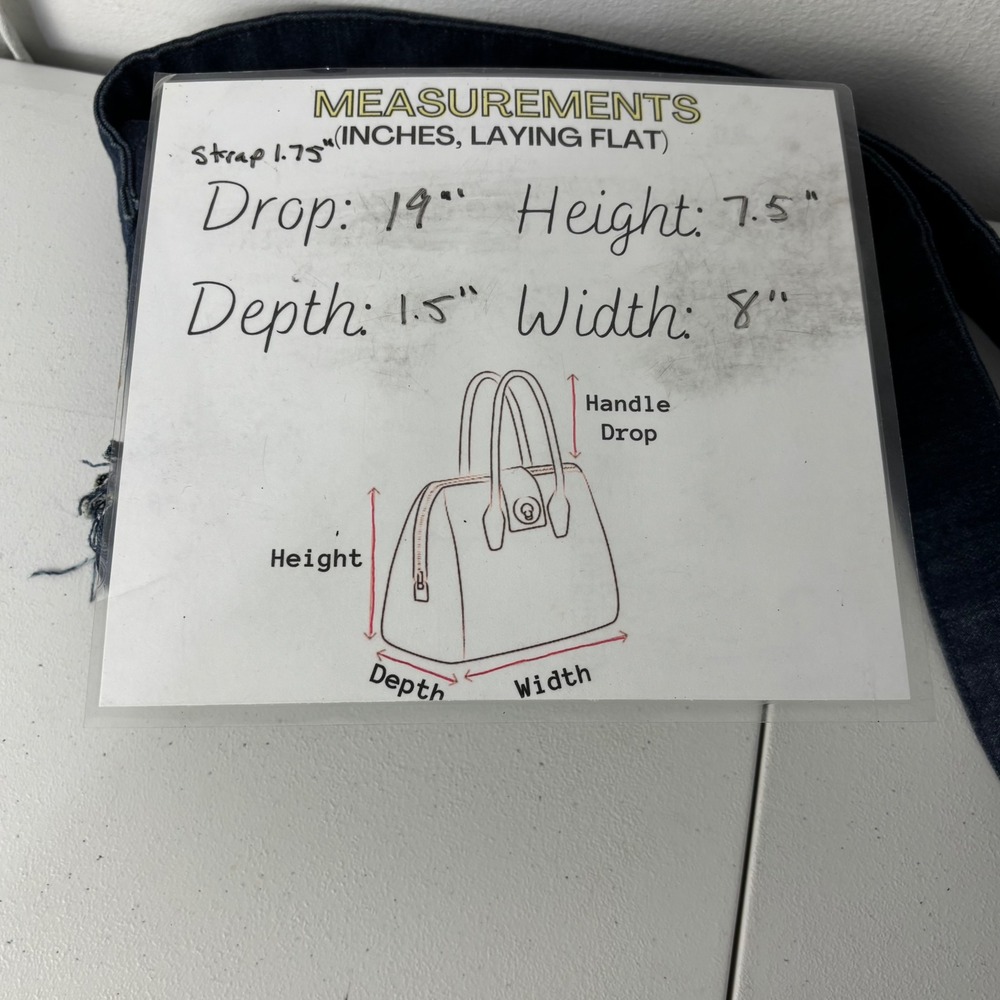 MEASUREMENTS
Strap 1.75" (INCHES, LAYING FLAT)
Drop: 19" Height: 7.5"
Depth: 1.5" Width: 8"
Handle
Drop
Height
Depth Width